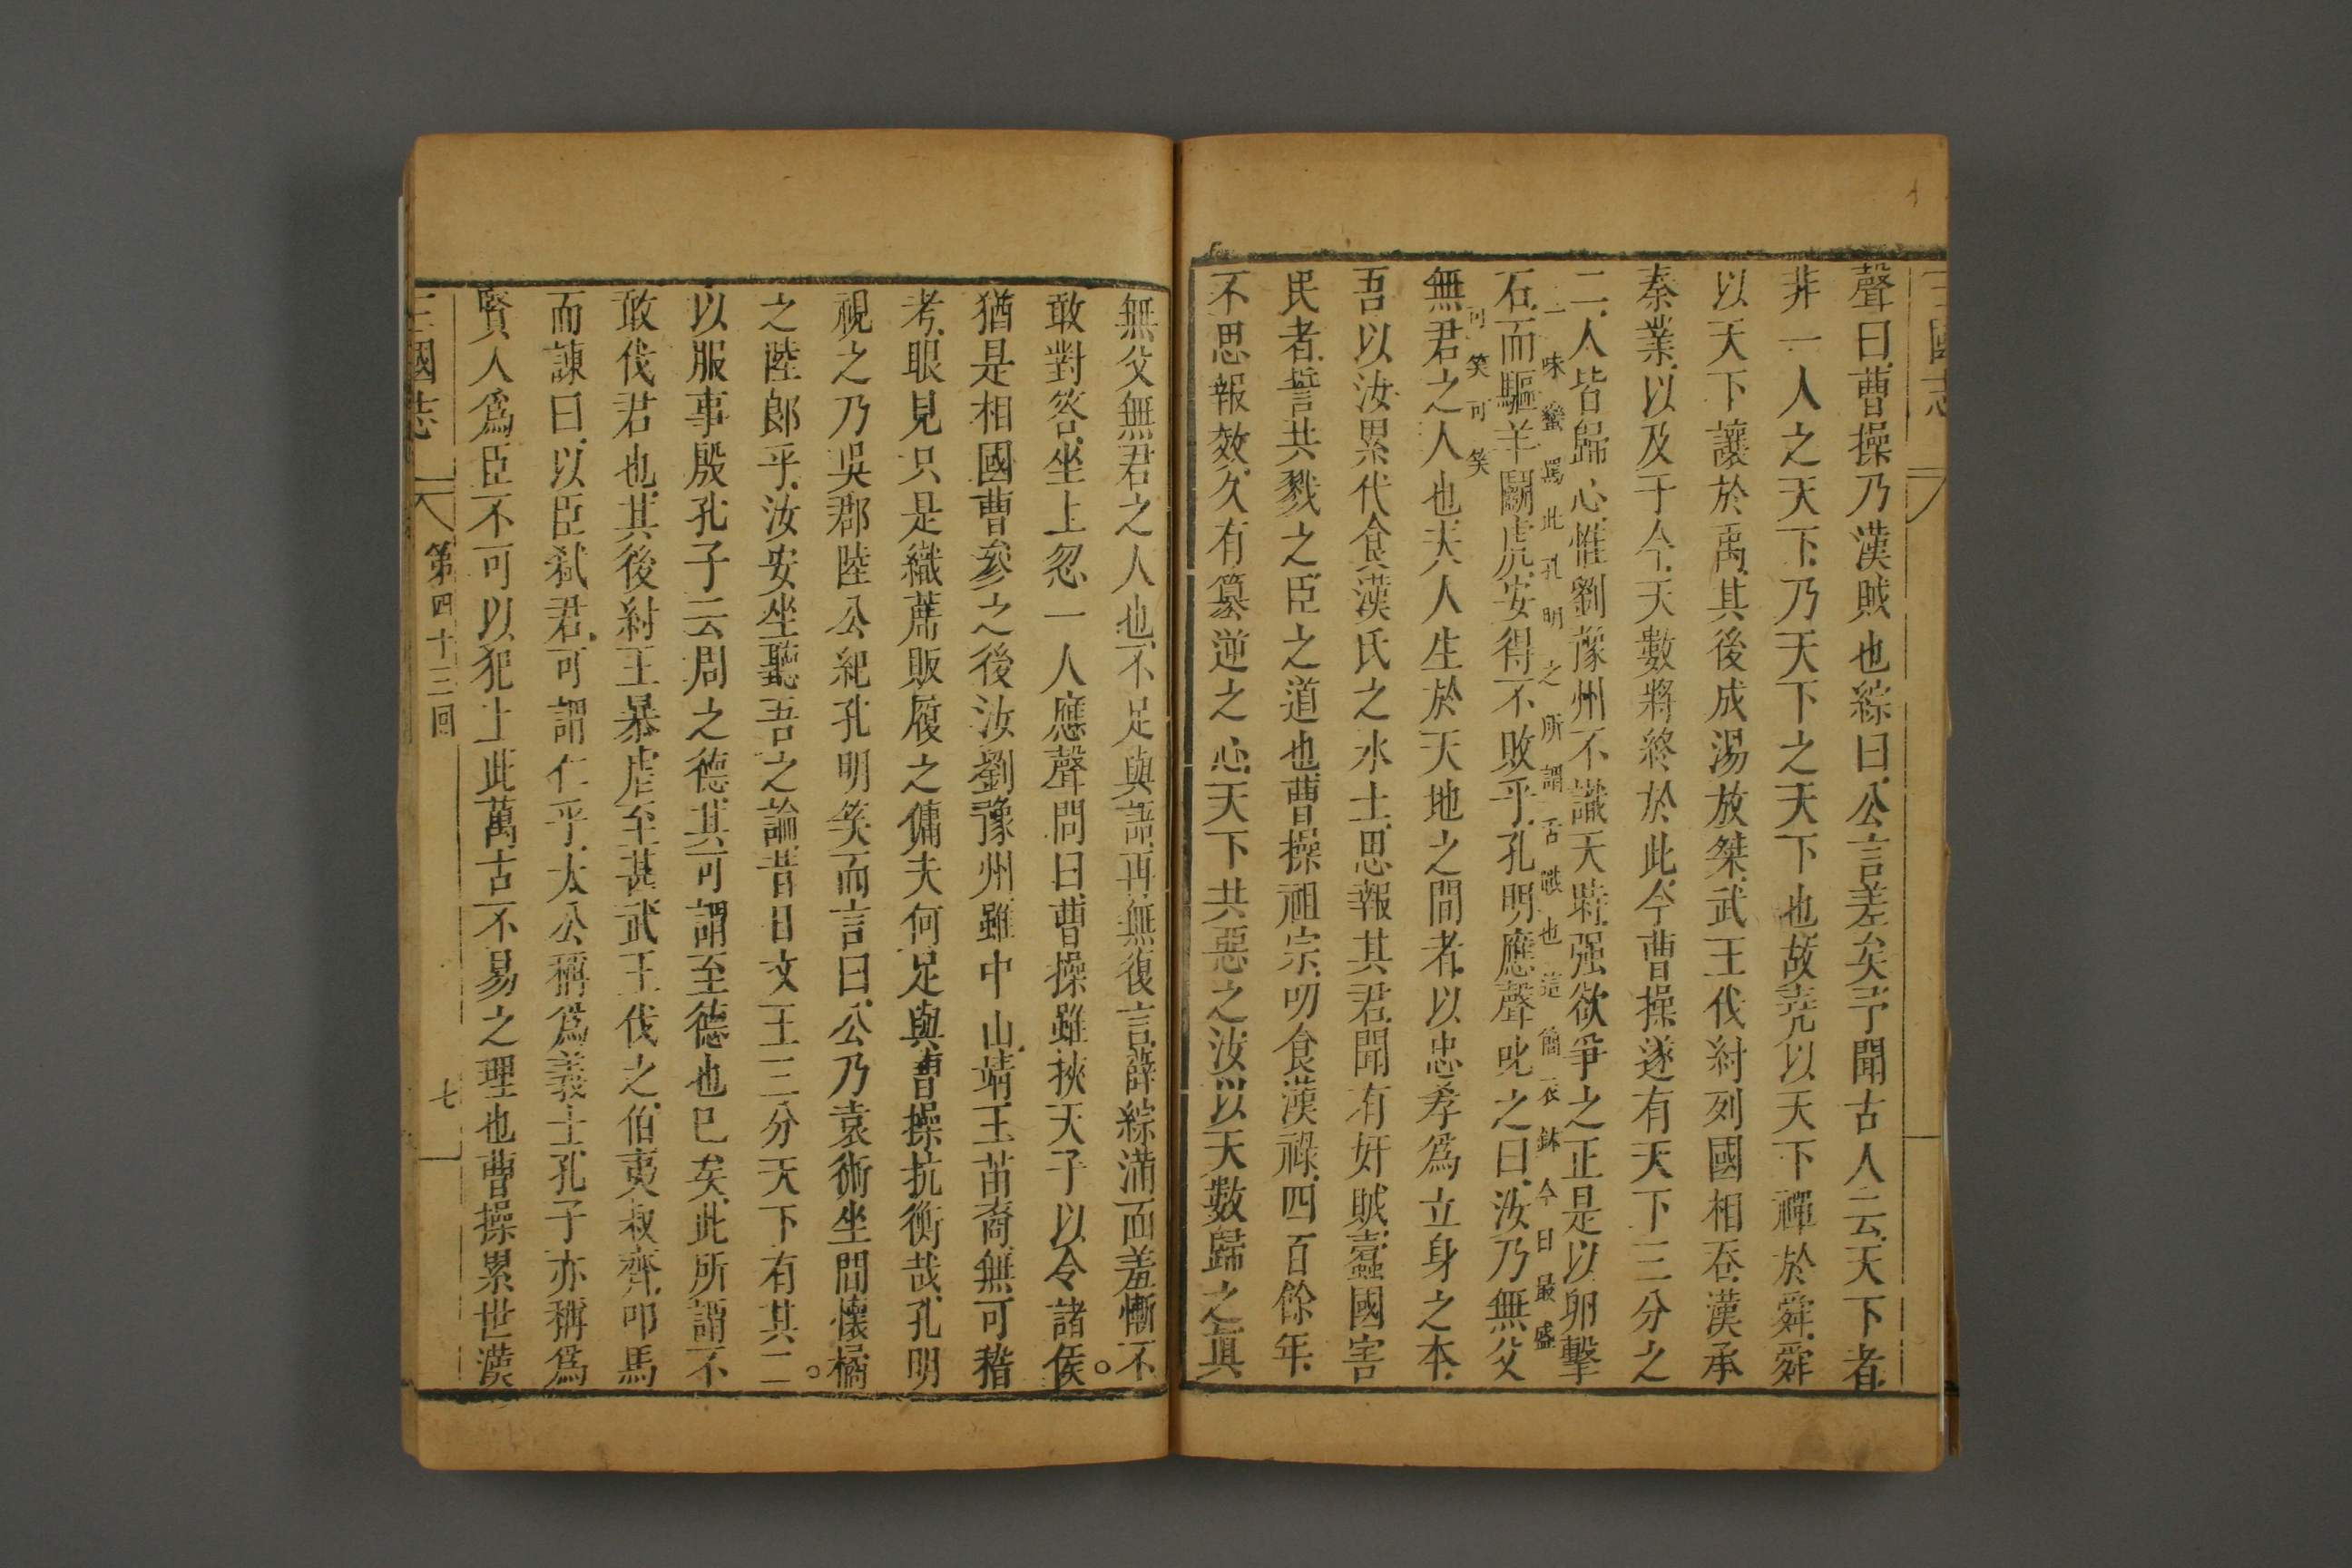 三國志
聲曰曹操乃漢賊也綜曰公言差矣予聞古人云天下者
非一人之天下乃天下之天下也故堯以天下禪於舜舜
以天下讓於禹其後成湯放桀武王伐紂列國相吞漢承
秦業以及于今天數將終於此今曹操遂有天下三分之
二人皆歸心惟劉豫州不識天時强欲爭之正是以卵擊
一味蠻罵此孔明之所謂舌戰也這箇衣鉢今日最盛
石而驅羊鬬虎安得不敗乎孔明應聲叱之曰汝乃無父
可笑可笑
無君之人也夫人生於天地之間者以忠孝爲立身之本
吾以汝累代食漢氏之水土思報其君聞有奸賊蠹國害
民者誓共戮之臣之道也曹操祖宗叨食漢祿四百餘年
不思報效久有篡逆之心天下共惡之汝以天數歸之眞
無父無君之人也不足與語再無復言薛綜滿面羞慚不
敢對答坐上忽一人應聲問曰曹操雖挾天子以令諸侯
猶是相國曹參之後汝劉豫州雖中山靖王苗裔無可稽
考眼見只是織蓆販履之傭夫何足與曹操抗衡哉孔明
視之乃吳郡陸公紀孔明笑而言曰公乃袁術坐間懷橘
之陸郎乎汝安坐聽吾之論昔日文王三分天下有其二
以服事殷孔子云周之德其可謂至德也已矣此所謂不
敢伐君也其後紂王暴虐至甚武王伐之伯夷叔齊叩馬
而諫曰以臣弒君可謂仁乎太公稱爲義士孔子亦稱爲
賢人爲臣不可以犯上此萬古不易之理也曹操累世漢
三國志 第四十三回 七